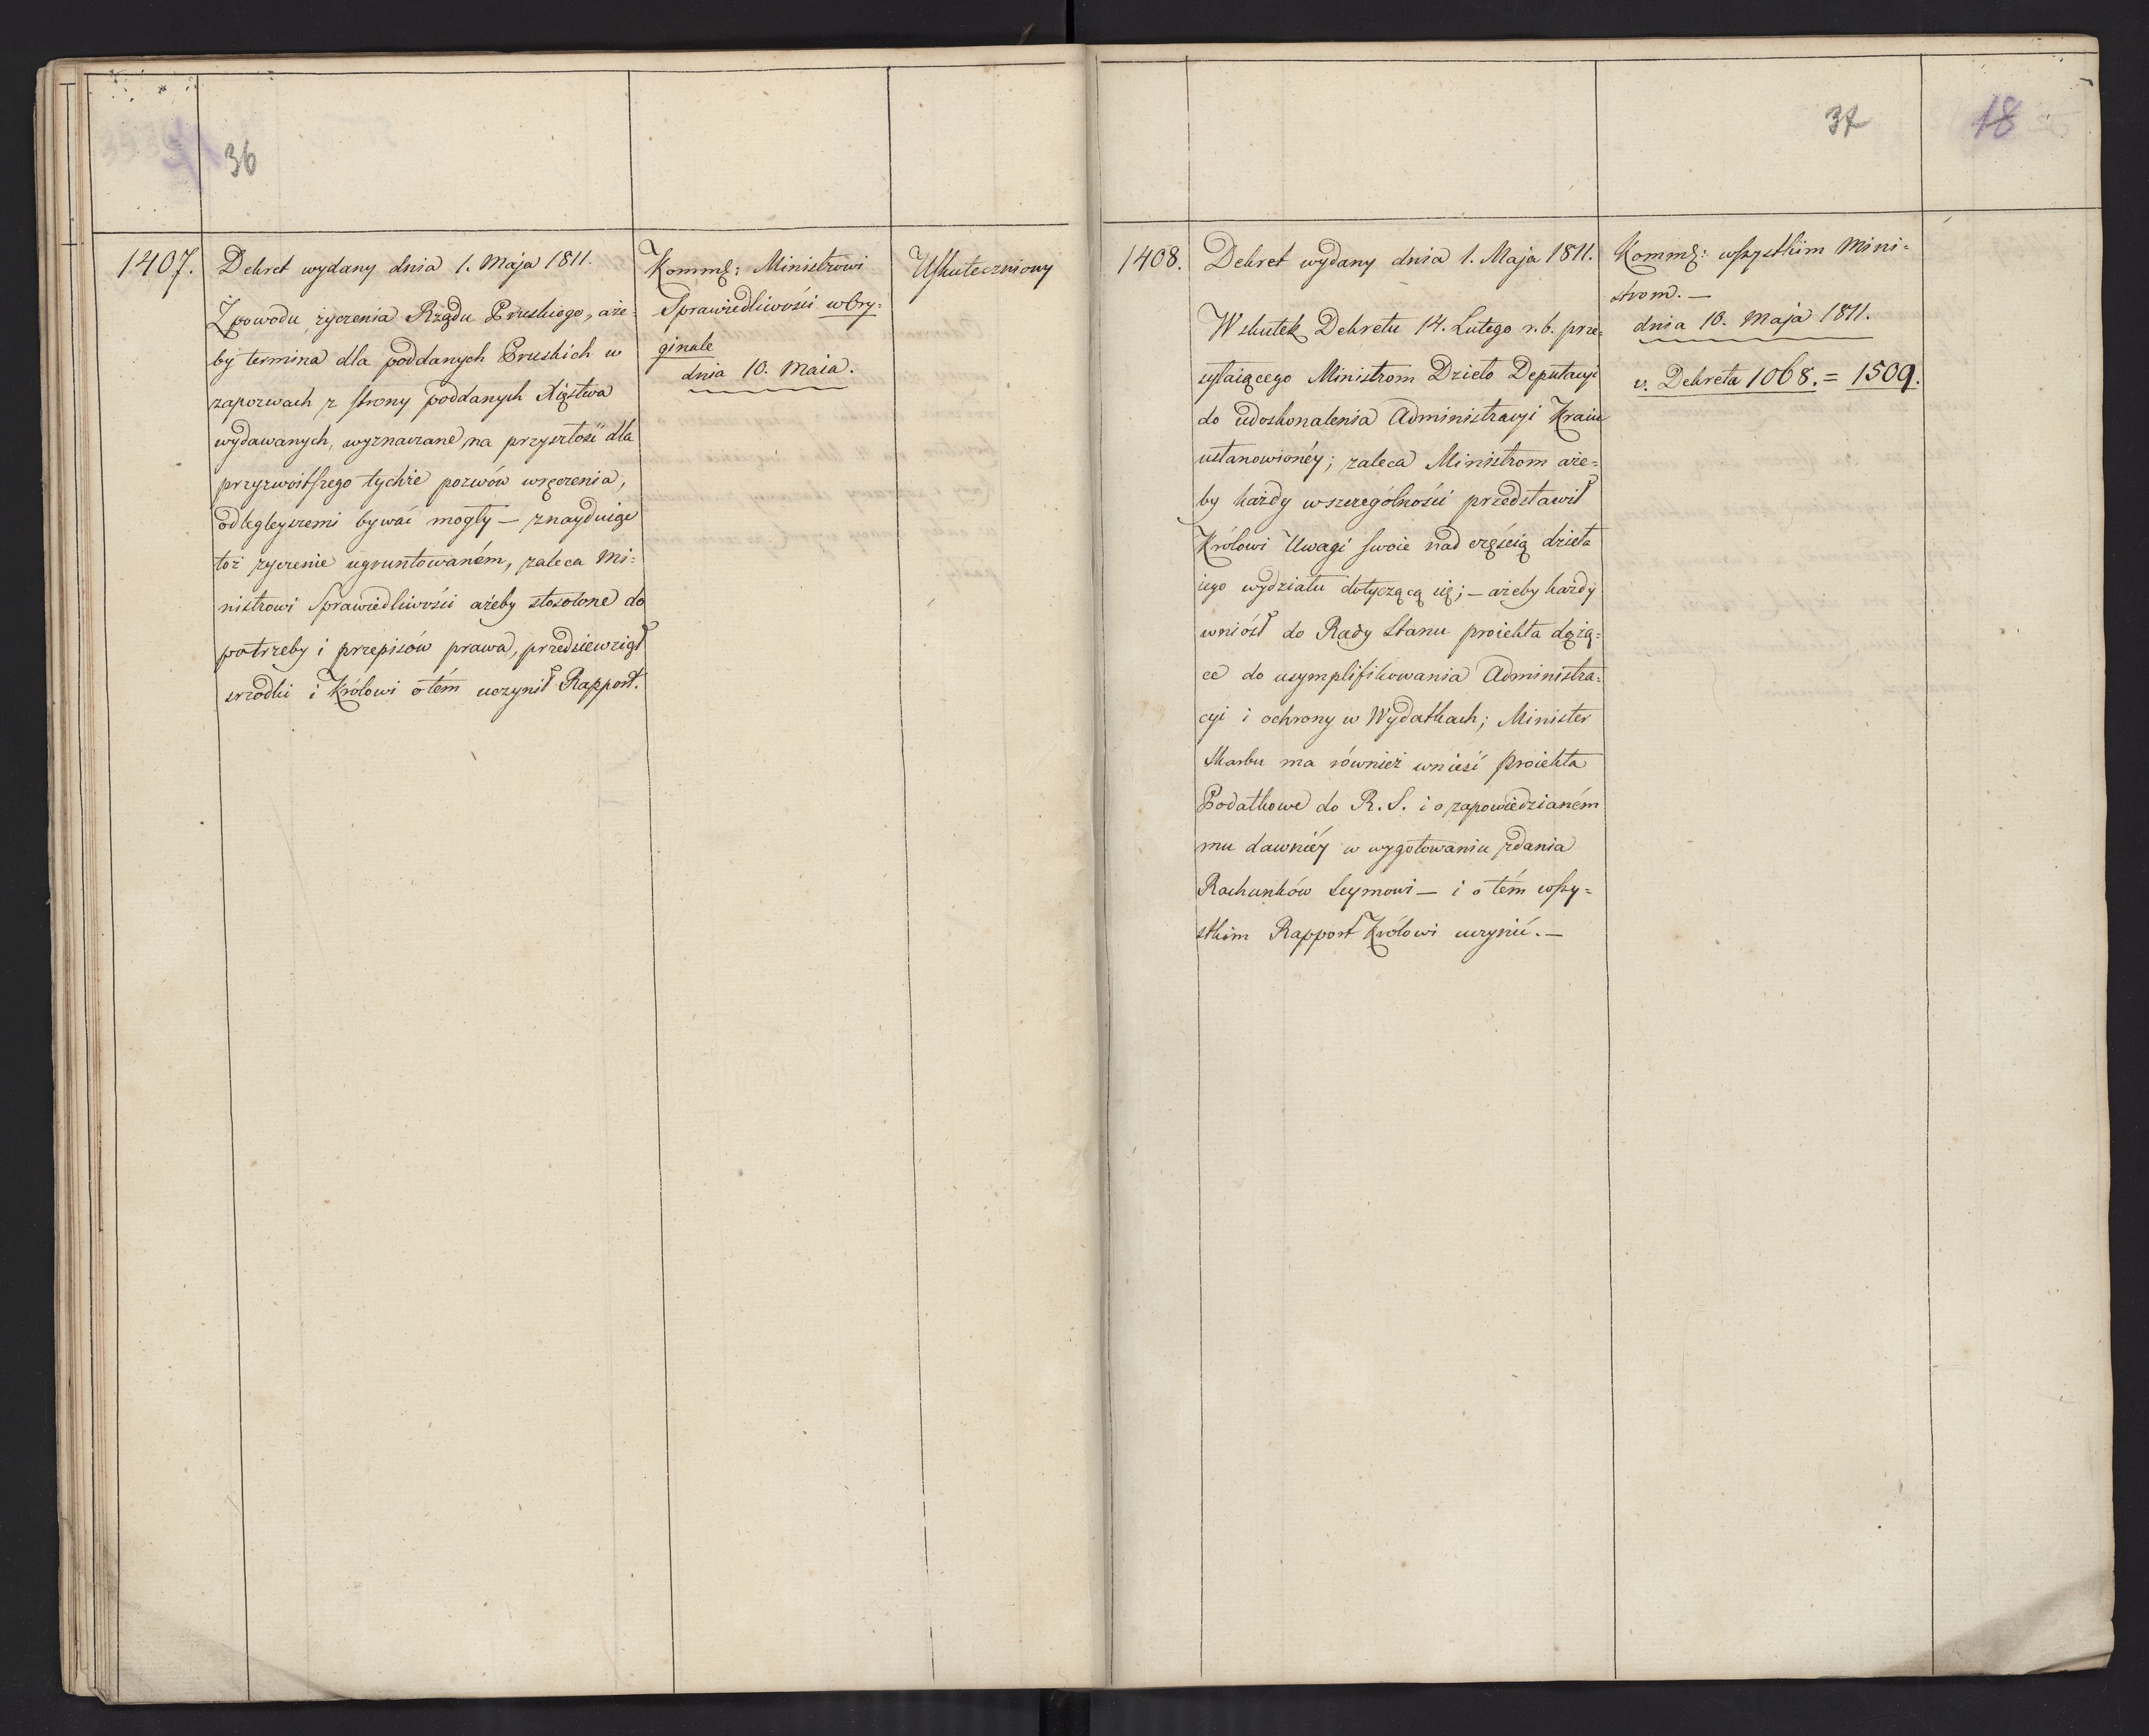 36
1407.
Dekret wydany dnia 1. Maja 1811.
Z powodu życzenia Rządu Pruskiego, aże-
by termina dla poddanych Pruskich w
zapozwach z strony poddanych Xięstwa
wydawanych, wyznaczane, na przyszłość dla
przyzwoitszego tychże pozwów wręczenia,
odlegleyszemi bywać mogły — znayduiąc
toż życzenie ugruntowaném, zaleca Mi-
nistrowi Sprawiedliwości ażeby stosowne do
potrzeby i przepisów prawa, przedsiewziął
srzodki i Królowi o tém uczynił Rapport.
Ministrowi
Sprawiedliwości w Ory-
ginale
dnia 10. Maia.
Uskuteczniony
37
18
1408.
Dekret wydany dnia 1. Maja 1811.
W skutek Dekretu 14. Lutego r. b. prze-
syłaiącego Ministrom Dzieło Deputacyi
do udoskonalenia Administracyi Kraiu
ustanowionéy; zaleca Ministrom aże=
by każdy w szczególności przedstawił
Królowi Uwagi swoie nad częścią dzieła
iego wydziału dotyczącą się; — ażeby każdy
wniósł do Rady Stanu proiekta dążą=
ce do usymplifikowania Administra=
cyi i ochrony w Wydatkach; Minister
Skarbu ma również wnieść proiekta
Podatkowe do R. S. i o zapowiedzianém
mu dawniéy w wygotowaniu zdania
Rachunków Seymowi — i o tém wszy=
stkim Rapport Królowi uczynić. —
wszystkim Mini=
strom. —
dnia 10. Maja 1811.
v. Dekreta 1068. = 1509.